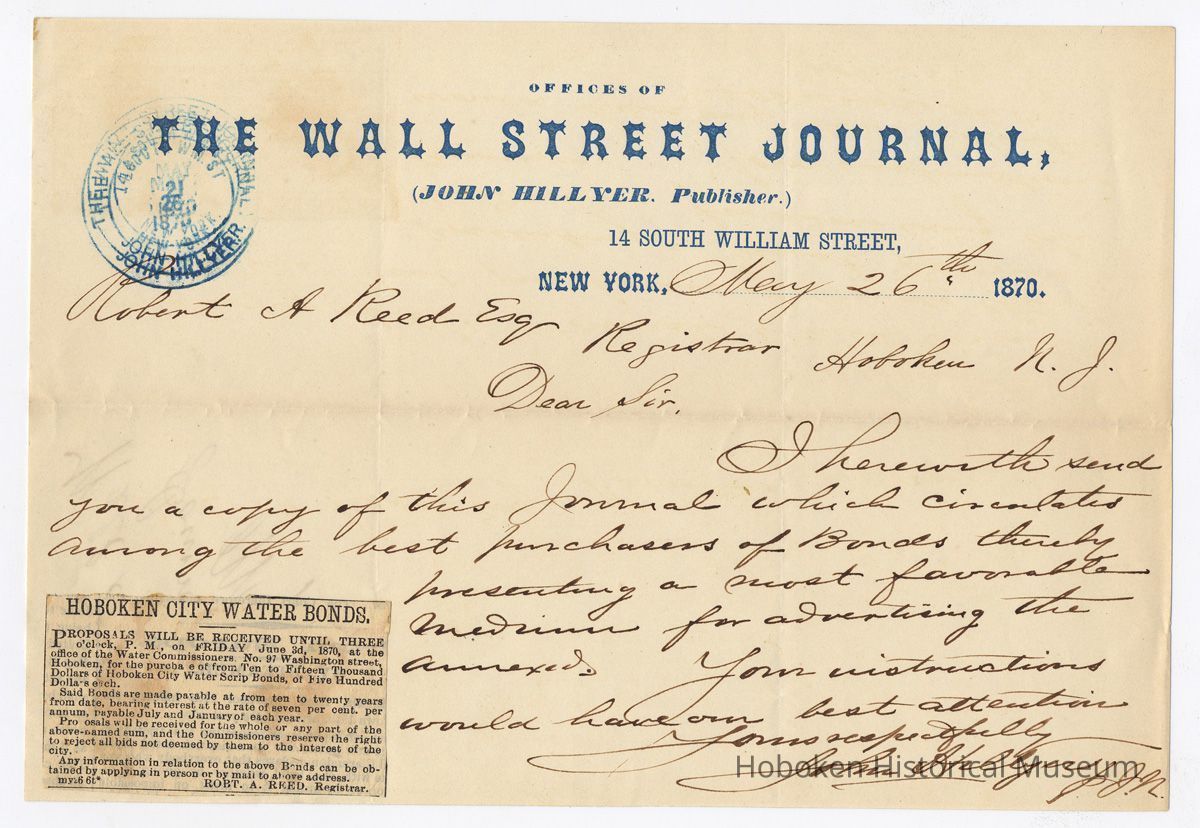 OFFICES OF
THE WALL STREET JOURNAL,
(JOHN HILLYER. Publisher.)
14 SOUTH WILLIAM STREET,
NEW YORK, May 26th 1870.
JOHN HILLYER.
Robert A Reed Esq
Registrar Hoboken N. J.
Dear Sir,
I herewith send
you a copy of this Journal which circulates
among the best purchasers of Bonds thereby
presenting a most favorable
medium for advertising the
annexed. Your instructions
would have our best attention
Yours respectfully
John Hillyer
HOBOKEN CITY WATER BONDS.
PROPOSALS WILL BE RECEIVED UNTIL THREE
o'clock, P. M., on FRIDAY June 3d, 1870, at the
office of the Water Commissioners. No. 97 Washington street,
Hoboken, for the purchase of from Ten to Fifteen Thousand
Dollars of Hoboken City Water Scrip Bonds, of Five Hundred
Dollars each.
Said Bonds are made payable at from ten to twenty years
from date, bearing interest at the rate of seven per cent. per
annum, payable July and January of each year.
Proposals will be received for the whole or any part of the
above-named sum, and the Commissioners reserve the right
to reject all bids not deemed by them to the interest of the
city.
Any information in relation to the above Bonds can be ob-
tained by applying in person or by mail to above address.
my26 6t* ROBT. A. REED. Registrar.
Hoboken Historical Museum